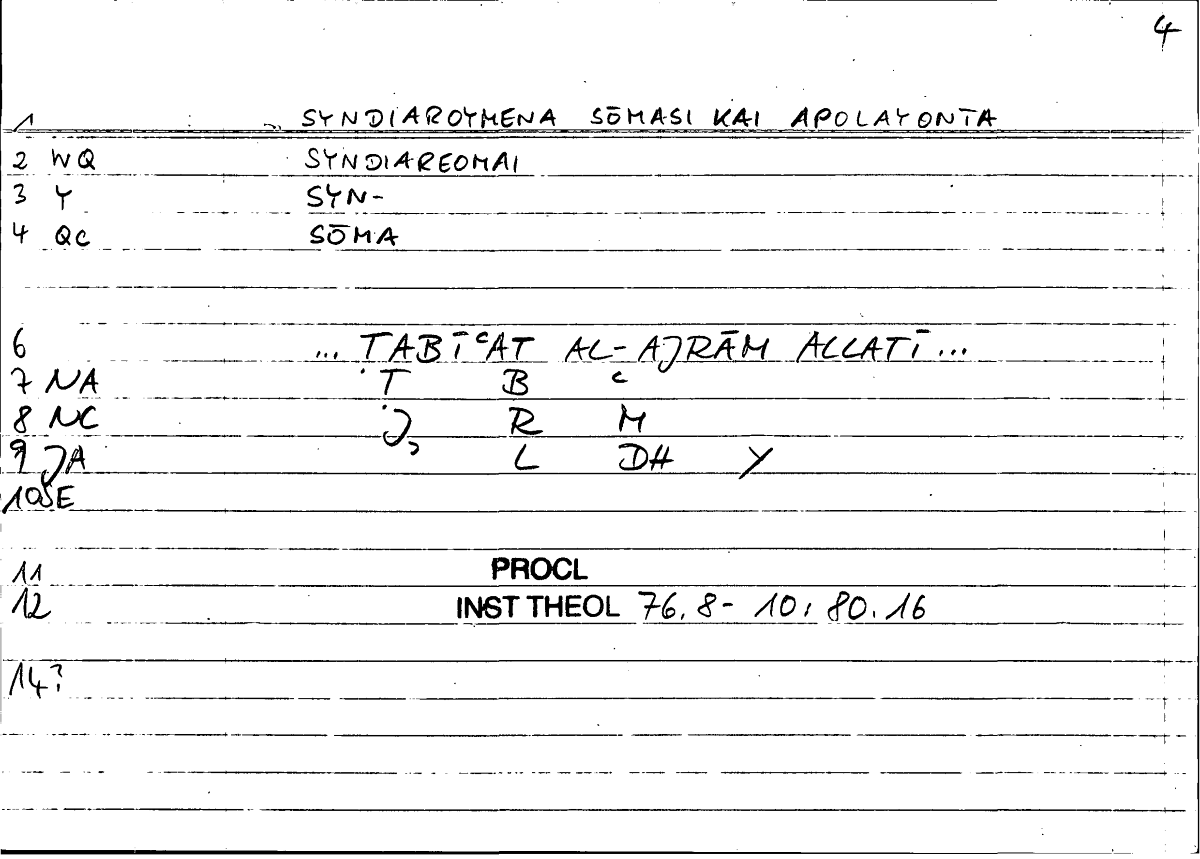 4
1 SYNDIAROYMENA SŌMASI KAI APOLAYONTA
2 WQ SYNDIAREOMAI
3 Y SYN-
4 QC SŌMA
6 ... TABĪᶜAT AL-AJRĀM ALLATĪ...
7 NA Ṭ B ᶜ
8 NC J R M
9 JA L DH Y
10 SE
11 PROCL
12 INST THEOL 76.8-10; 80.16
14?